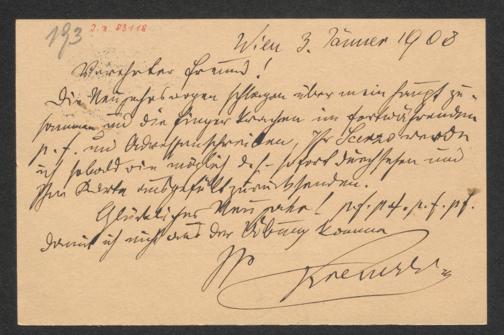 193
J.N. 83118
Wien 3. Jänner 1908
Verehrter Freund!
Die Neujahrswogen schlagen über mein Haupt zu-
sammen und die Finger krachen im fortwährenden
p. f. und Adressenschreiben, Ihr Scerzo werde
ich sobald wie möglich d.h. sofort durchsehen und
Ihre Karte ausgefüllt zurücksenden.
Glückliches Neujahr! p.f. p.f. p.f. p.f.
damit ich nicht aus der Übung komme
Ihr
Kremser